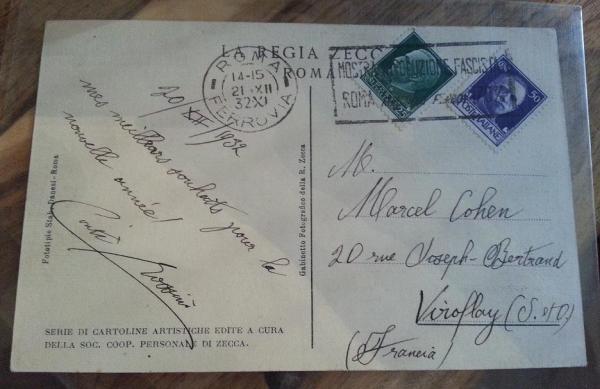 LA REGIA ZECC
ROMA
ROMA
14-15
21·XII
32XI
FERROVIA
MOSTRA RIVOLUZIONE FASCISTA
ROMA
50
POSTE ITALIANE
20/XII/1932
mes meilleurs souhaits pour la
nouvelle année!
M.
Marcel Cohen
20 rue Joseph-Bertrand
Viroflay (S. et O.)
(Francia)
Fototipie Stab. Danesi-Roma
Gabinetto Fotografico della R. Zecca
SERIE DI CARTOLINE ARTISTICHE EDITE A CURA
DELLA SOC. COOP. PERSONALE DI ZECCA.